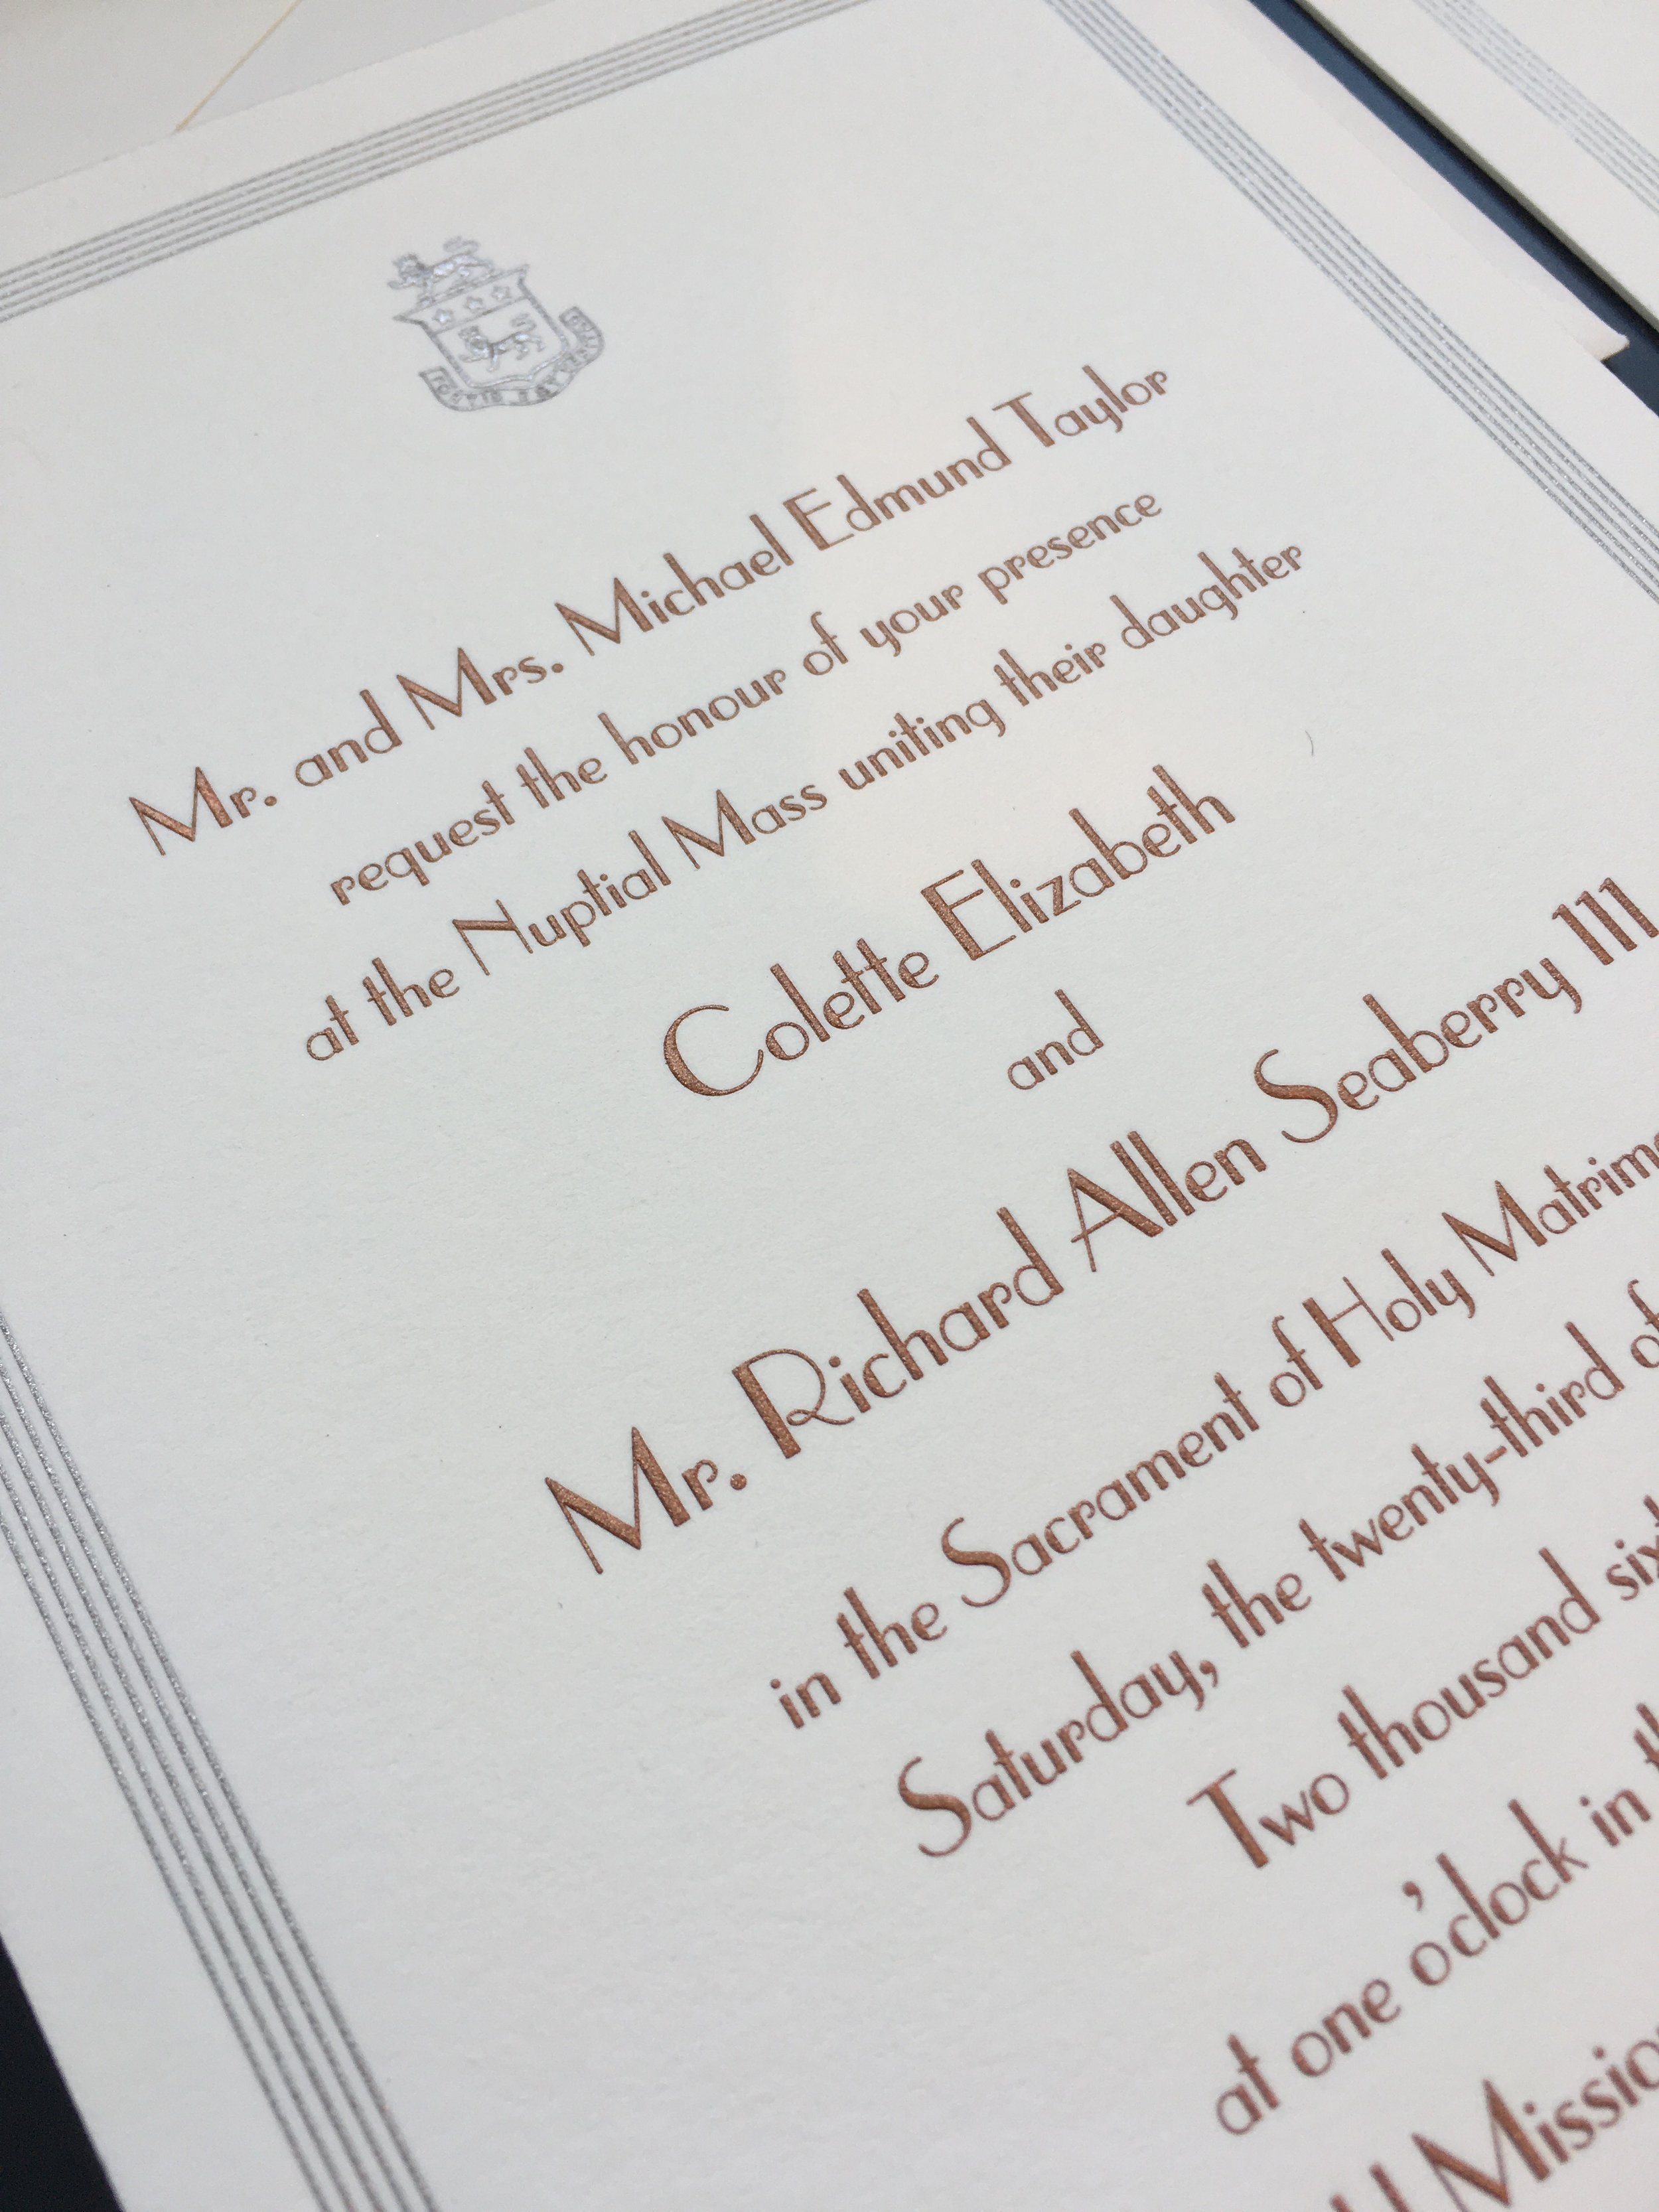 Mr. and Mrs. Michael Edmund Taylor
request the honour of your presence
at the Nuptial Mass uniting their daughter
Colette Elizabeth
and
Mr. Richard Allen Seaberry 111
in the Sacrament of Holy
Saturday, the twenty-third of
Two thousand
at one o'clock in